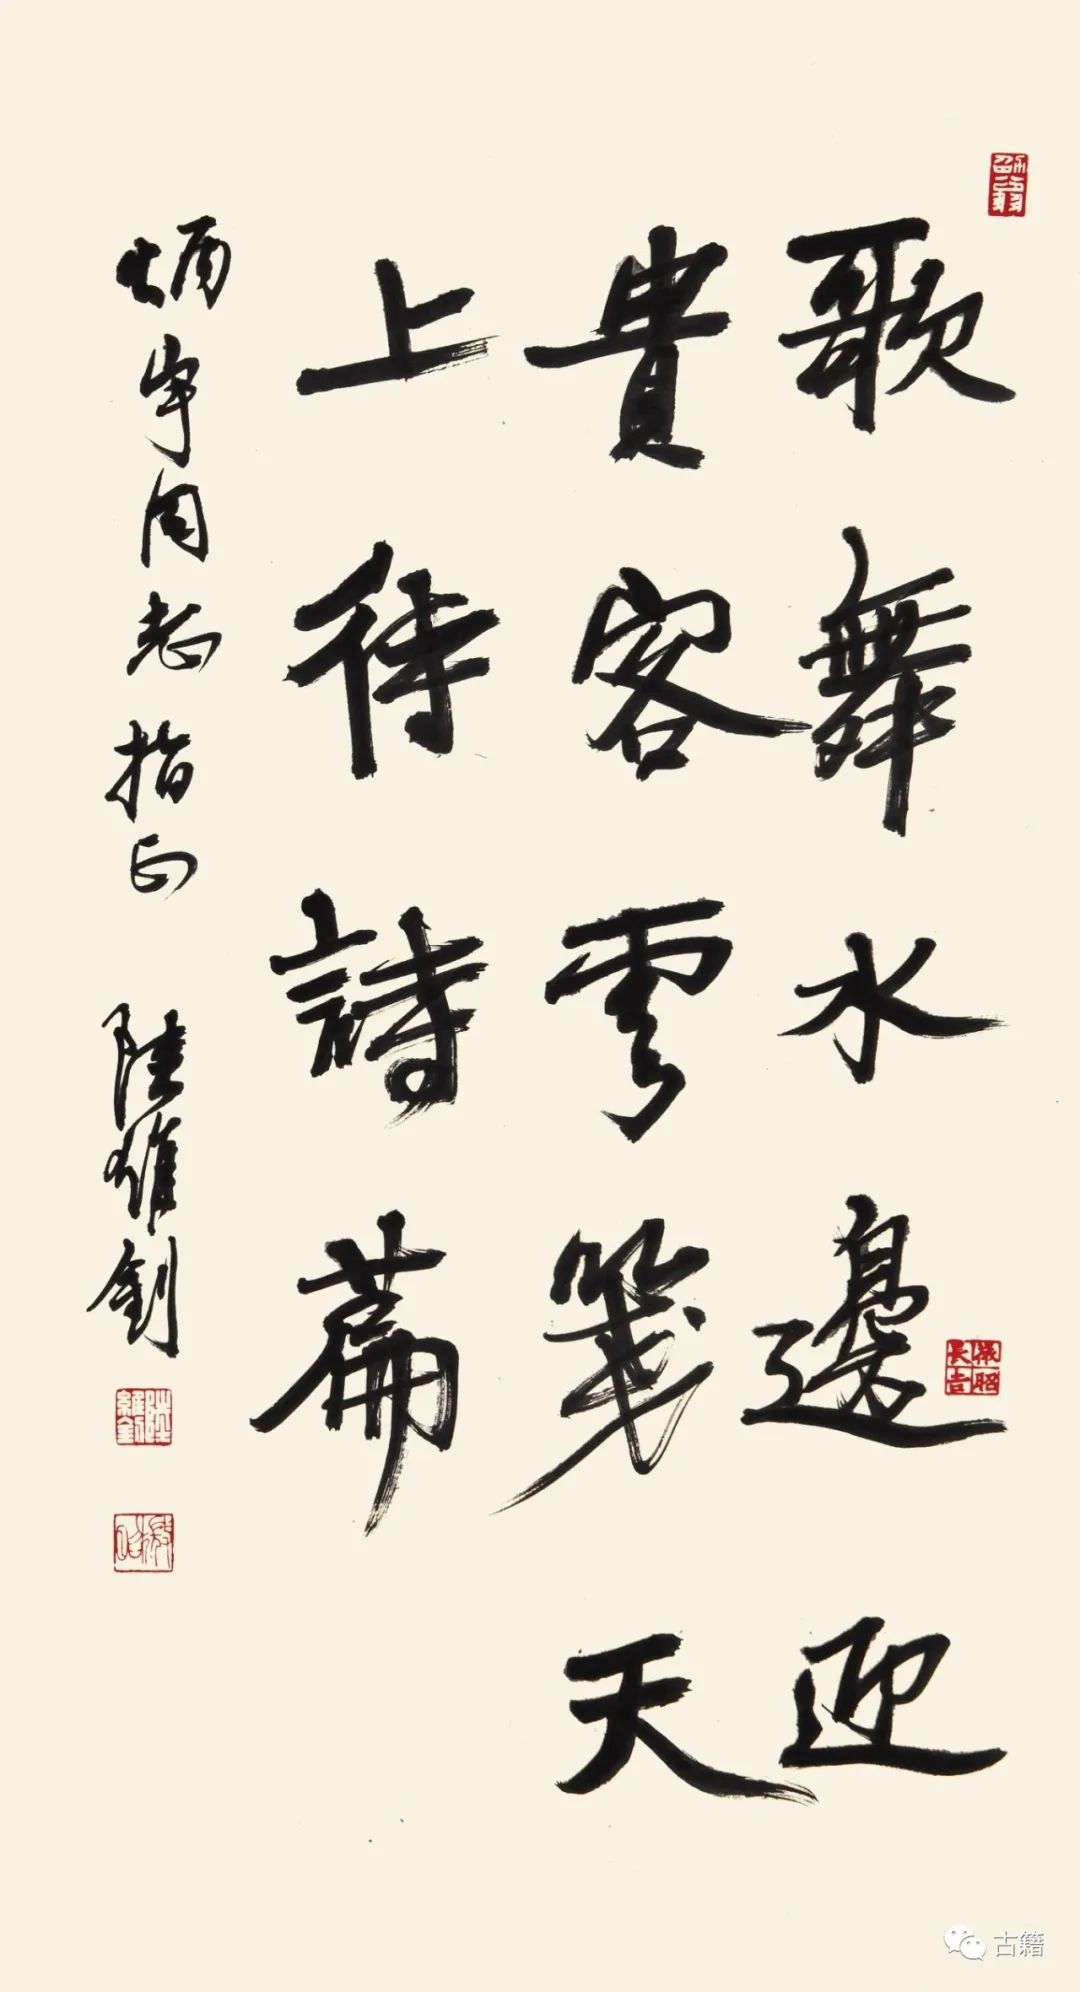 歌舞水邊迎
貴客雲箋天
上待詩篇
炳宇同志指正 陸維釗
陸維釗
古籍